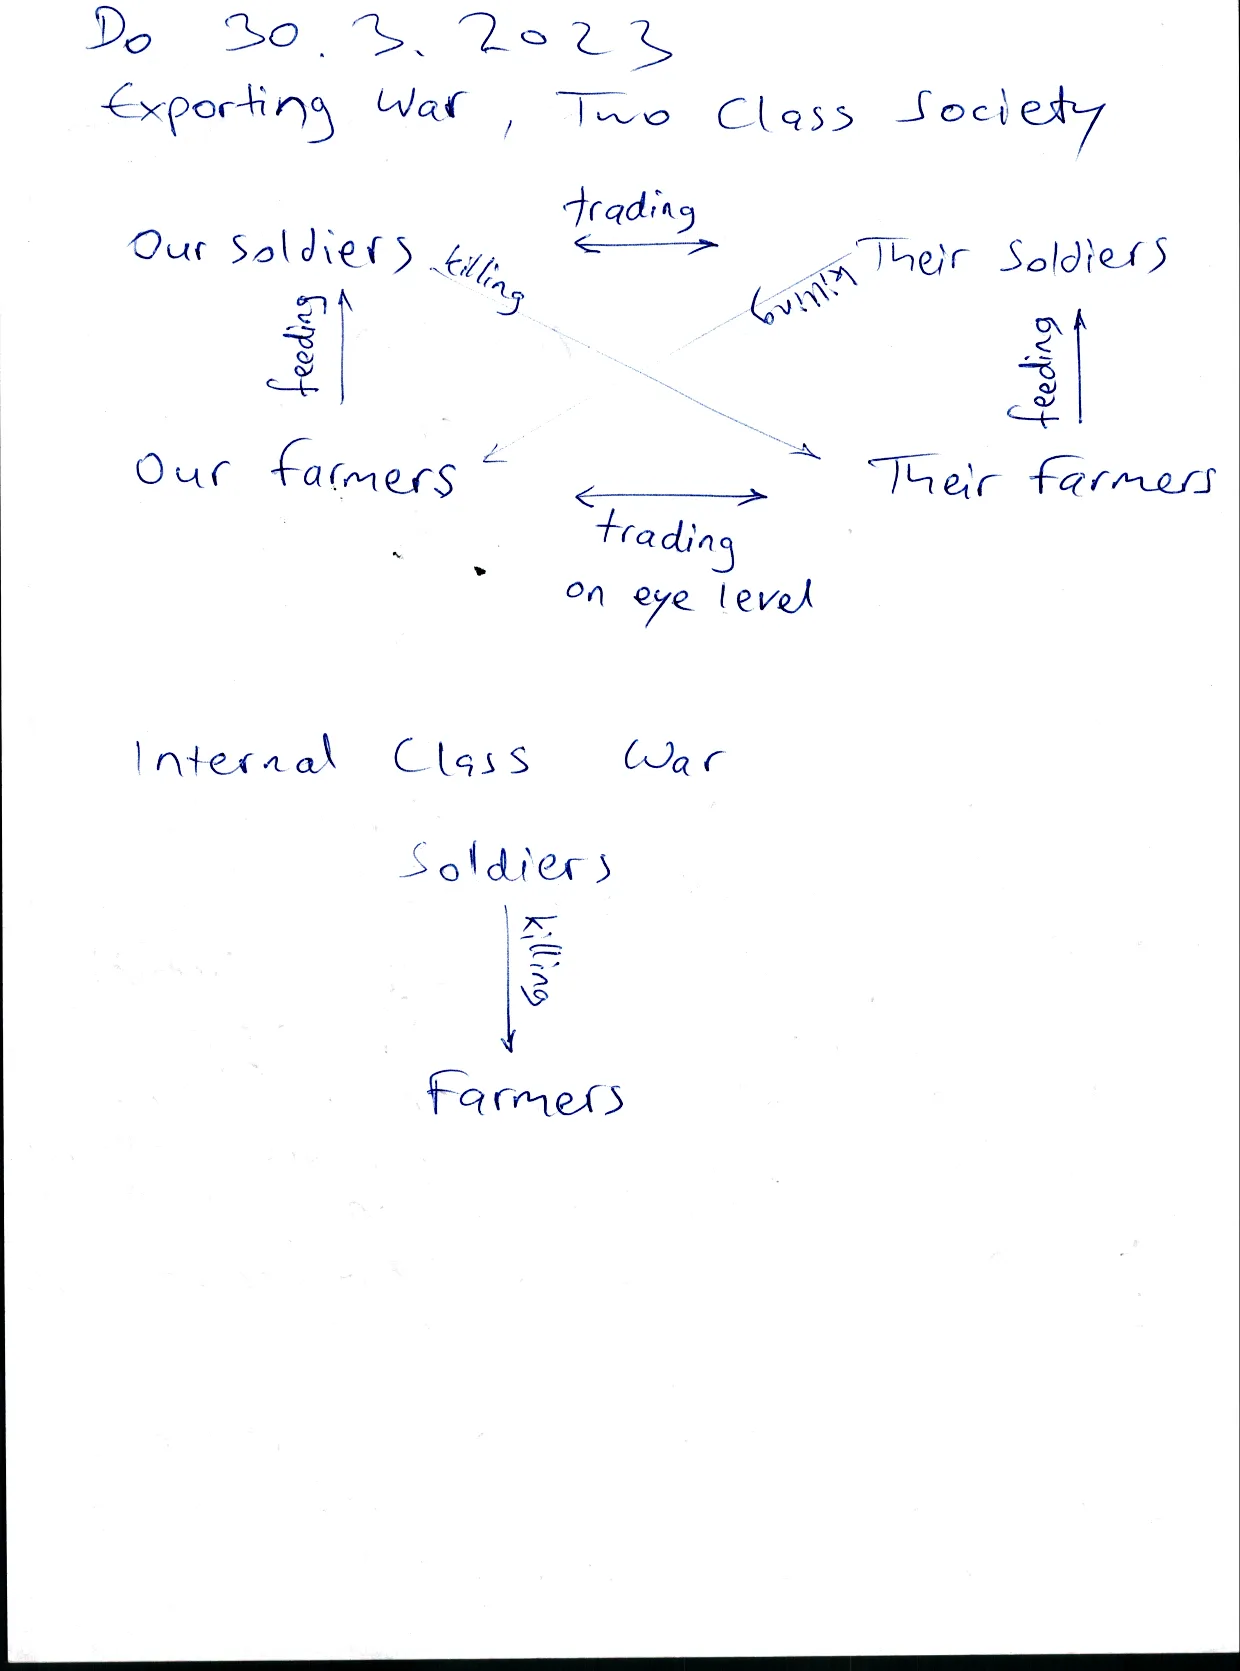 Do 30.3.2023
Exporting War, Two Class Society
trading
Our soldiers
Their Soldiers
killing
killing
feeding
feeding
Our farmers
Their farmers
trading
on eye level
Internal Class War
Soldiers
killing
Farmers